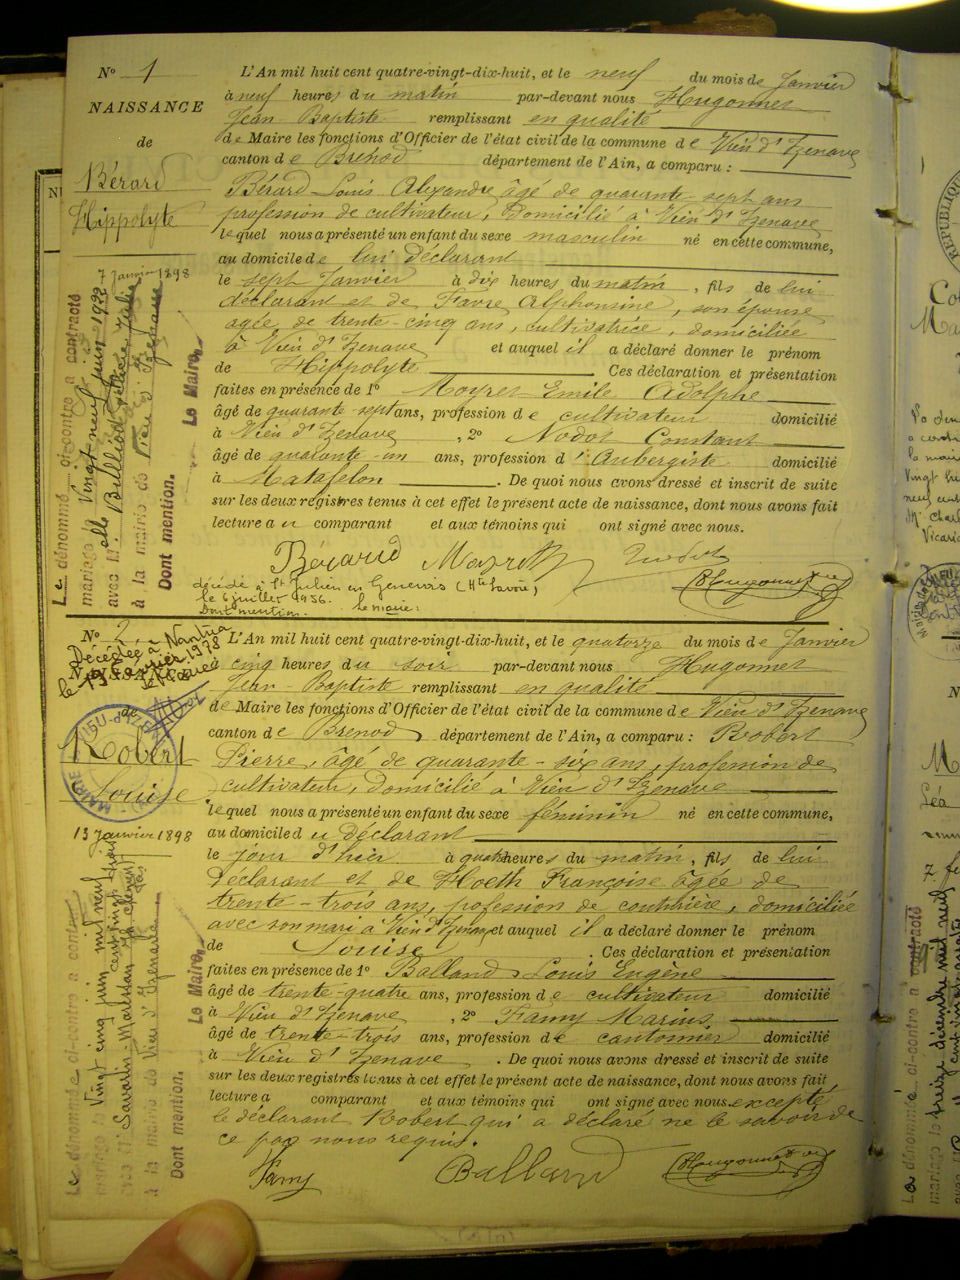 N° 1
NAISSANCE
de
Bérard
Hippolyte
7 Janvier 1898
L'An mil huit cent quatre-vingt-dix-huit, et le neuf du mois de Janvier
à neuf heures du matin par-devant nous Hugonnet
Jean Baptiste remplissant en qualité
de Maire les fonctions d'Officier de l'état civil de la commune de Vieu d'Izenave
canton de Brénod département de l'Ain, a comparu :
Bérard Louis Alexandre âgé de quarante-sept ans
profession de cultivateur, domicilié à Vieu d'Izenave
lequel nous a présenté un enfant du sexe masculin né en cette commune,
au domicile de lui déclarant
le sept Janvier à dix heures du matin, fils de lui
déclarant et de Favre Alphonsine, son épouse
agée de trente-cinq ans, cultivatrice, domiciliée
à Vieu d'Izenave et auquel il a déclaré donner le prénom
de Hippolyte Ces déclaration et présentation
faites en présence de 1° Moyret Emile Adolphe
âgé de quarante sept ans, profession de cultivateur domicilié
à Vieu d'Izenave, 2° Nodot Constant
âgé de quarante-un ans, profession d'Aubergiste domicilié
à Matafelon. De quoi nous avons dressé et inscrit de suite
sur les deux registres tenus à cet effet le présent acte de naissance, dont nous avons fait
lecture au comparant et aux témoins qui ont signé avec nous.
Bérard Nodot Hugonnet
décédé à St Julien en Genevois (Hte Savoie)
le 6 juillet 1956.
Dont mention. le maire :
Le dénommé ci-contre a contracté
mariage le Vingt neuf juin 1922
avec M. Billiod
à la mairie de Vieu d'Izenave
Dont mention.
Le Maire,
N° 2
Décédée à Nantua
le 19 1978
Robert
Louise
MAIRIE VIEU-D'IZENAVE
13 Janvier 1898
L'An mil huit cent quatre-vingt-dix-huit, et le quatorze du mois de Janvier
à cinq heures du soir par-devant nous Hugonnet
Jean-Baptiste remplissant en qualité
de Maire les fonctions d'Officier de l'état civil de la commune de Vieu d'Izenave
canton de Brénod département de l'Ain, a comparu : Robert
Pierre, âgé de quarante-six ans, profession de
cultivateur, domicilié à Vieu d'Izenave
lequel nous a présenté un enfant du sexe féminin né en cette commune,
au domicile du déclarant
le jour d'hier à quatre heures du matin, fils de lui
déclarant et de Hoeth Françoise âgée de
trente-trois ans, profession de couturière, domiciliée
avec son mari à Vieu d'Izenave et auquel il a déclaré donner le prénom
de Louise. Ces déclaration et présentation
faites en présence de 1° Balland Louis Eugène
âgé de trente-quatre ans, profession de cultivateur domicilié
à Vieu d'Izenave, 2° Famy Marius
âgé de trente-trois ans, profession de cantonnier domicilié
à Vieu d'Izenave. De quoi nous avons dressé et inscrit de suite
sur les deux registres tenus à cet effet le présent acte de naissance, dont nous avons fait
lecture a comparant et aux témoins qui ont signé avec nous excepté
le déclarant Robert qui a déclaré ne le savoir de
ce par nous requis.
Famy Balland Hugonnet
Le dénommé ci-contre a contracté
mariage le Vingt cinq juin mil neuf cent vingt
avec M. Savarin-Marestan
à la mairie de Vieu d'Izenave
Dont mention.
Le Maire,